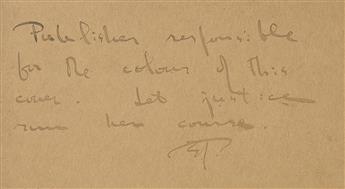 Publisher responsible
for the colour of this
cover. Let justice
run her course.
EP.